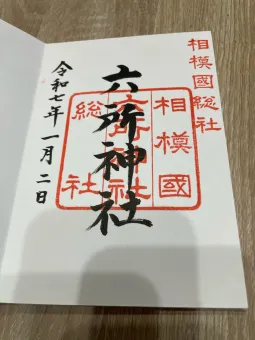 相模國総社
相模國
六所神社
総社
六所神社
令和七年一月二日